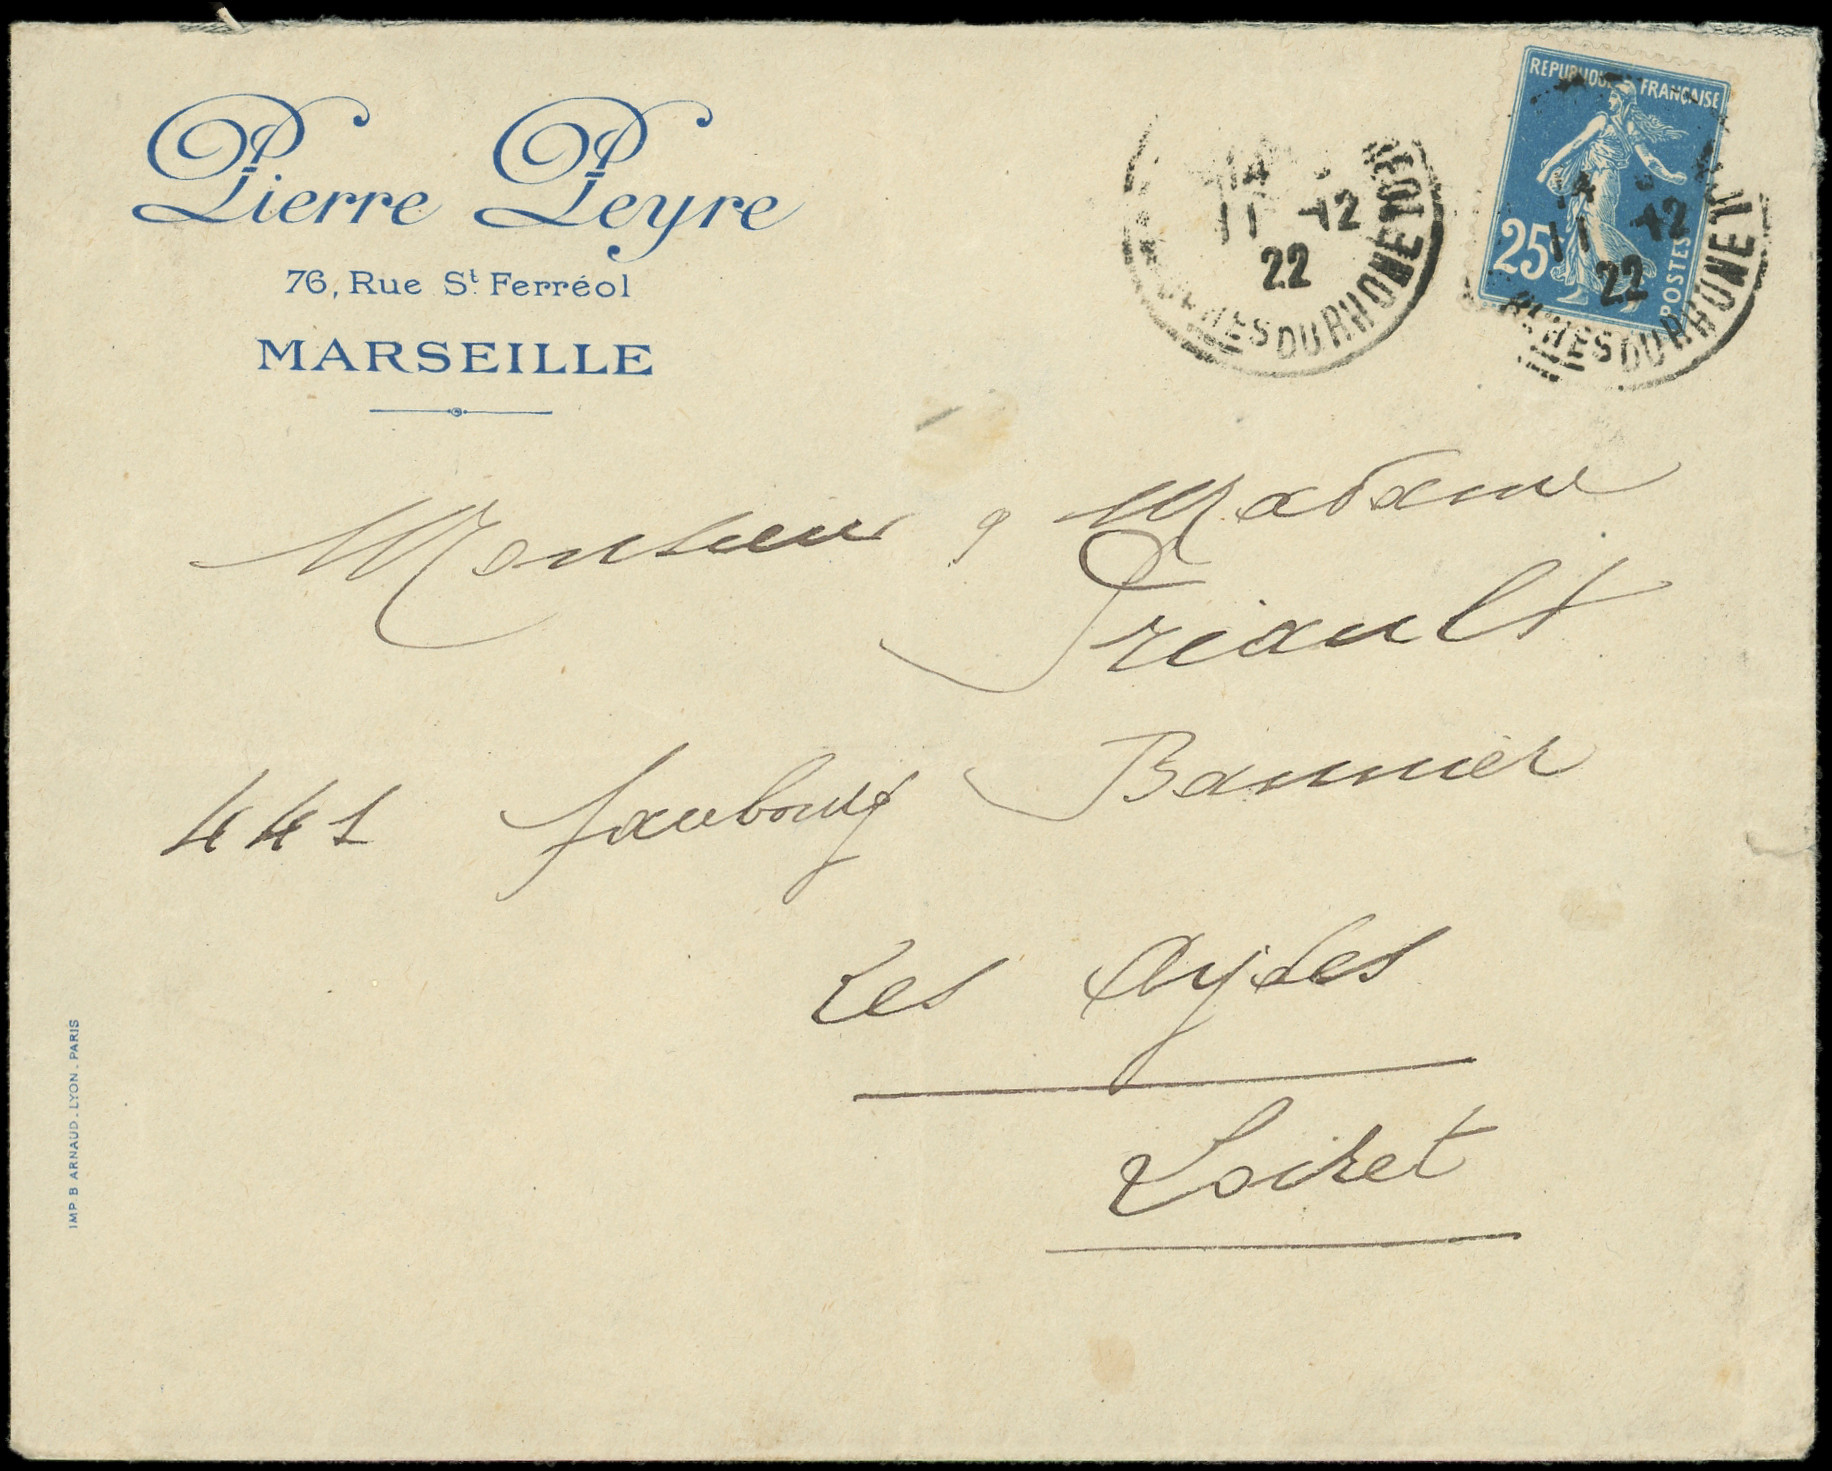 Pierre Peyre
76, Rue St. Ferréol
MARSEILLE
REPUBLIQUE FRANÇAISE
25
POSTES
14
11 -12
22
DU RHONE
14
11 -12
22
DU RHONE
Monsieur & Madame
Triault
441 faubourg Bannier
Les Aydes
Loiret
IMP B ARNAUD. LYON. PARIS